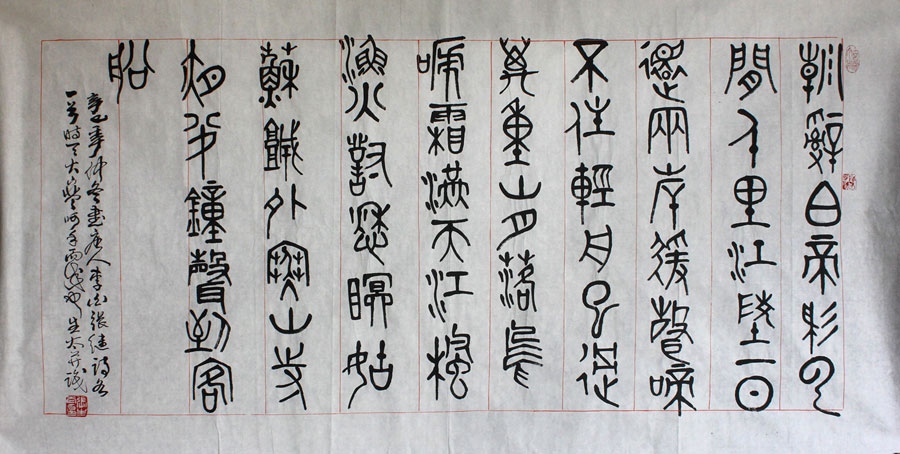 朝辭白帝彩云
間千里江陵一日
還兩岸猿聲啼
不住輕舟已過
萬重山月落烏
啼霜滿天江楓
漁火對愁眠姑
蘇城外寒山寺
夜半鐘聲到客
船
仲冬書唐人李白張繼詩各
一首時天大寒呵手而成也生太并識